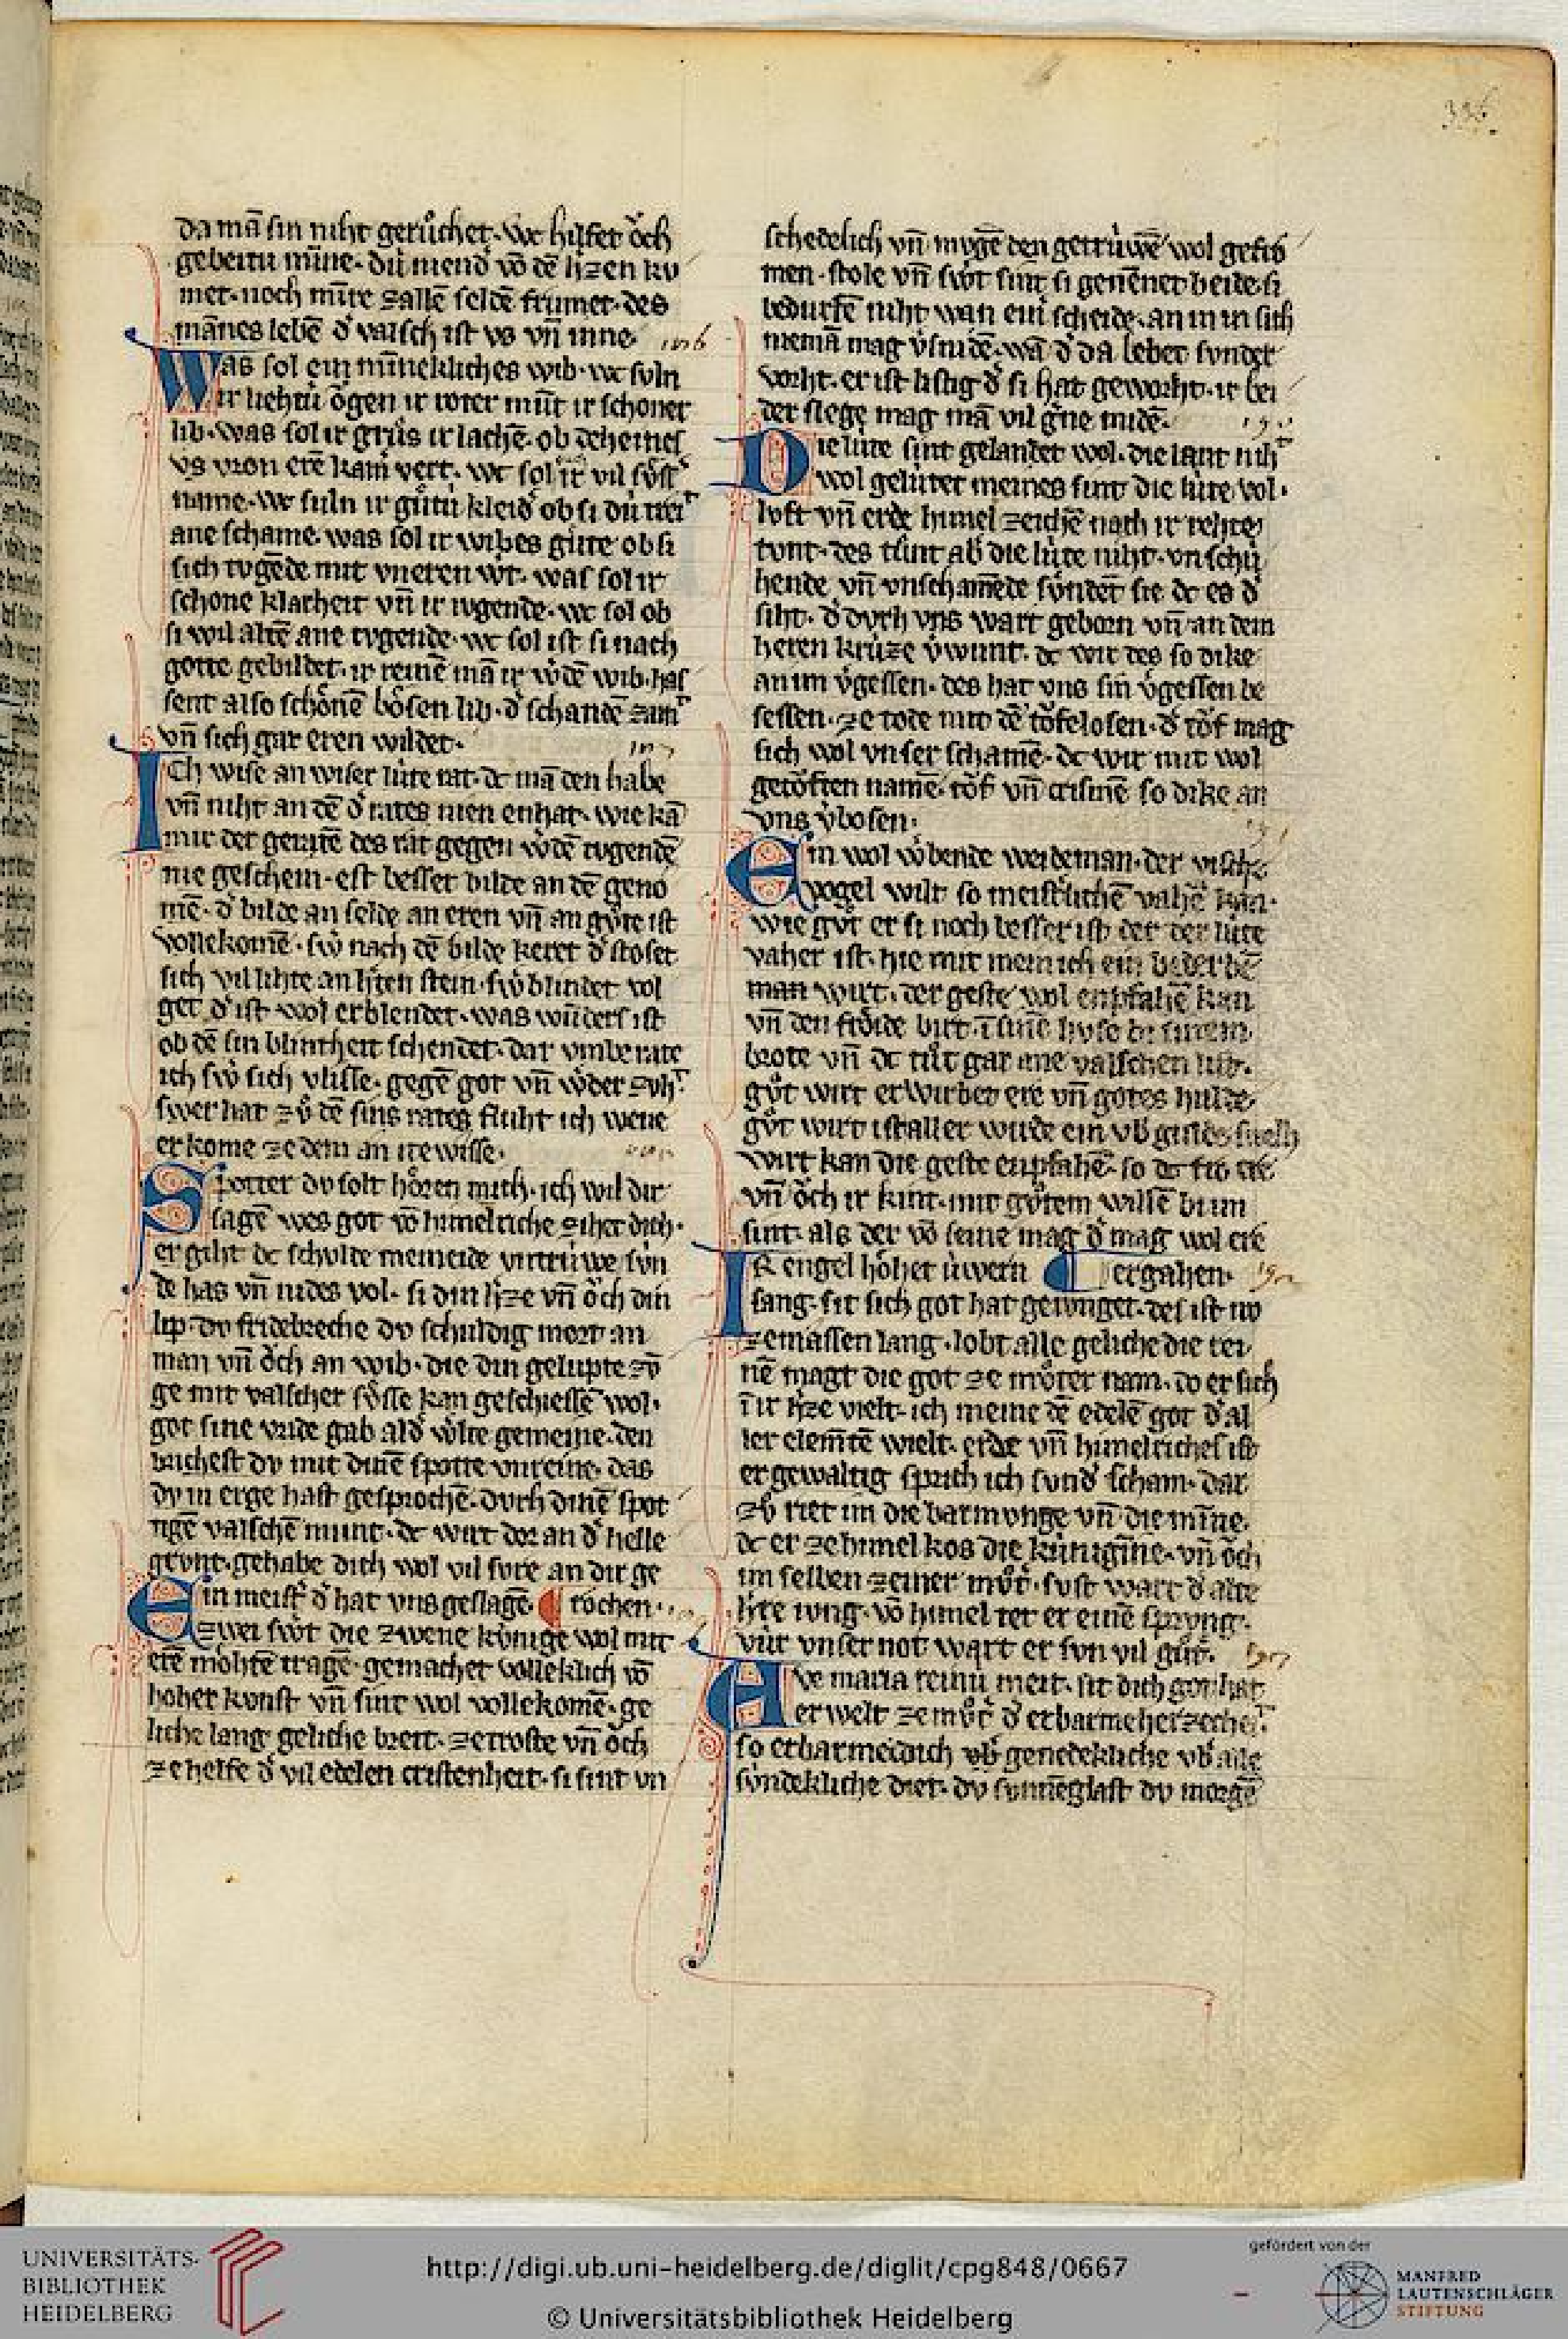 336.
da mā ſin niht gerůchet. wc hilfet ǒch
gebeitu miñe. dú niend᾽ vō dē h᾽zen ku
met. noch mīre zallē ſeldē frumet. des
mānes lebē d᾽ valſch iſt vs vn̄ inne.
Was ſol ein mīnekliches wib. wc ſvln
ir liehtú ǒgen ir roter mūt ir ſchoner
lib. was ſol ir grůs ir lachē. ob deheines
vs vron erē kam vert. wc ſol ir vil ſůſſ᾽
name. wc ſuln ir gůtú kleid᾽ ob ſi dú treit
ane ſchame. was ſol ir wibes gute ob ſi
ſich tvgēde mit vneren w᾽t. was ſol ir
ſchone klarheit vn̄ ir ivgende. wc ſol ob
ſi wil altē ane tvgende. wc ſol iſt ſi nach
gotte gebildet. ir reinē mā ir w᾽dē wib. haſ
ſent alſo ſchónē bóſen lib. d᾽ ſchandē zamt
vn̄ ſich gar eren wildet.
Ich wiſe an wiſer lúte rat. dc mā den habe
vn̄ niht an dē d᾽ rates nien enhat. wie kā
mir der geratē des rat gegen w᾽dē tvgendē
nie geſchein. eſt beſſer bilde an dē geno
mē. d᾽ bilde an ſelde an eren vn̄ an gv̊te iſt
vollekomē. ſw᾽ nach dē bilde keret d᾽ ſtoſet
ſich vil lihte an h᾽ten ſtein. ſw᾽ blindet vol
get d᾽ iſt wol erblendet. was wūders iſt
ob dē ſin blintheit ſchendet. dar vmbe rate
ich ſw᾽ ſich vliſſe. gegē got vn̄ w᾽der zvht
ſwer hat zv̊ dē ſins rates fluht ich wene
er kome ze dem an itewiſſe.
Spotter dv ſolt hóren mich. ich wil dir
ſagē wes got vō himelriche ziher dich.
er giht dc ſchvlde meineide vntrúwe ſún
de has vn̄ nides vol. ſi din h᾽ze vn̄ ǒch din
lip. dv fridebreche dv ſchuldig mort an
man vn̄ ǒch an wib. die din gelupte zv̄
ge mit valſcher ſůſſe kan geſchieſſē wol.
got ſine vride gab ald᾽ w᾽lte gemeine. den
bricheſt dv mit dinē ſpotte vnreine. das
dv in erge haſt geſprochē. dvrh dinē ſpot
tigē valſchē munt. dc wirt dor an d᾽ helle
grvnt. gehabe dich wol vil ſvre an dir ge
Ein meiſt᾽ d᾽ hat vns geſlagē. ¶ rochen.
zwei ſw᾽t die zwene kv́nige wol mit
erē móhtē tragē. gemachet volleklich vō
hoher kvnſt vn̄ ſint wol vollekomē. ge
liche lang geliche breit. ze troſte vn̄ ǒch
ze helfe d᾽ vil edelen criſtenheit. ſi ſint vn
ſchedelich vn̄ mvgē den getrúwē wol gefro
men. ſtole vn̄ ſw᾽t ſint ſi genēnet beide. ſi
bedurfē niht wan ein ſcheide. an in in ſich
niemā mag v᾽ſnidē. wā d᾽ da lebet ſvnder
vorht. er iſt liſtig d᾽ ſi hat geworht. ir bei
der ſlege mag mā vil g᾽ne midē.
Die lúte ſint gelandet wol. die lant niht
wol gelútet meines ſint die lúte vol.
lvft vn̄ erde himel zeichē nach ir rehte
tvnt. des tůnt ab᾽ die lúte niht. vnſchú
hende vn̄ vnſchamēde ſv́ndēt ſie dc es d᾽
ſiht. d᾽ dvrh vns wart geborn vn̄ an dem
heren krúze v᾽wunt. dc wir des ſo dike
an im v᾽geſſen. des hat vns ſin v᾽geſſen be
ſeſſen. ze tode mit dē tǒfeloſen. d᾽ tǒf mag
ſich wol vnſer ſchamē. dc wir mit wol
getǒften namē. tǒf vn̄ criſmē ſo dike an
vns v᾽boſen.
Ein wol w᾽bende weideman. der viſche
vogel wilt ſo meiſt᾽lichē vahē kan.
wie gv̊t er ſi noch beſſer iſt der der lúte
vaher iſt. hie mit mein ich ein biderbē
man wirt. der geſte wol enpfahē kan
vn̄ den frǒide birt. ī ſinē hvſe bi ſinem
brote vn̄ dc tůt gar ane valſchen liſt.
gv̊t wirt erwirbet ere vn̄ gotes hulde.
gv̊t wirt iſt aller wirde ein vb᾽gulde. ſwelh
wirt kan die geſte enpfahē. ſo dc ſin wib
vn̄ ǒch ir kint. mit gůtem willē bi im
ſint. als der vō ſeine mag d᾽ mag wol ere
Ir engel hóhet úwern ¶ ergahen.
ſang. ſit ſich got hat geiunget. deſ iſt nv
ze maſſen lang. lobt alle geliche die rei
nē magt die got ze mv̊ter nam. do er ſich
ī ir h᾽ze vielt. ich meine dē edelē got d᾽ al
ler elemētē wielt. erde vn̄ himelriches iſt
er gewaltig ſprich ich ſvnd᾽ ſcham. dar
zv̊ riet im die barmvnge vn̄ die mīne.
dc er ze himel kos die kúnigīne. vn̄ ǒch
im ſelben zeiner mv̊t᾽. ſvſt wart d᾽ alte
h᾽re ivng. vō himel tet er einē ſprvng.
vúr vnſer not wart er ſvn vil gv̊t᾽.
Ave maria reinú meit. ſit dich got hat
erwelt ze mv̊t᾽ d᾽ erbarmeherzecheit
ſo erbarme dich vb᾽ genedekliche vb᾽ alle
ſv́ndekliche diet. dv ſvnnēglaſt dv morgē
UNIVERSITÄTS-
BIBLIOTHEK
HEIDELBERG
http://digi.ub.uni-heidelberg.de/diglit/cpg848/0667
© Universitätsbibliothek Heidelberg
gefördert von der
MANFRED
LAUTENSCHLÄGER
STIFTUNG